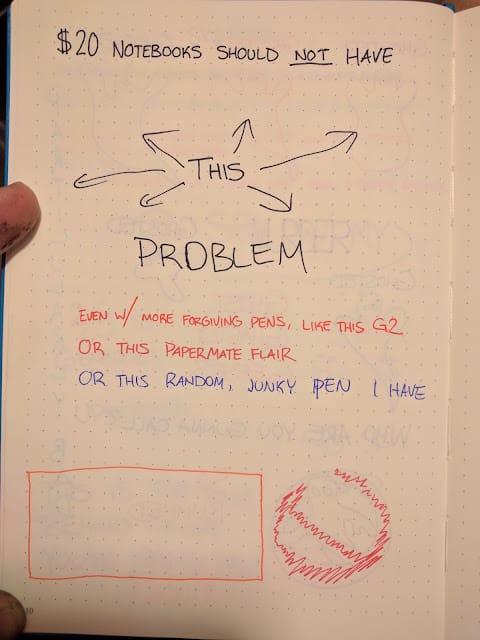 $20 NOTEBOOKS SHOULD NOT HAVE
THIS
PROBLEM
EVEN W/ MORE FORGIVING PENS, LIKE THIS G2
OR THIS PAPERMATE FLAIR
OR THIS RANDOM, JUNKY PEN I HAVE
WHO ARE YOU GUNNA CALL?